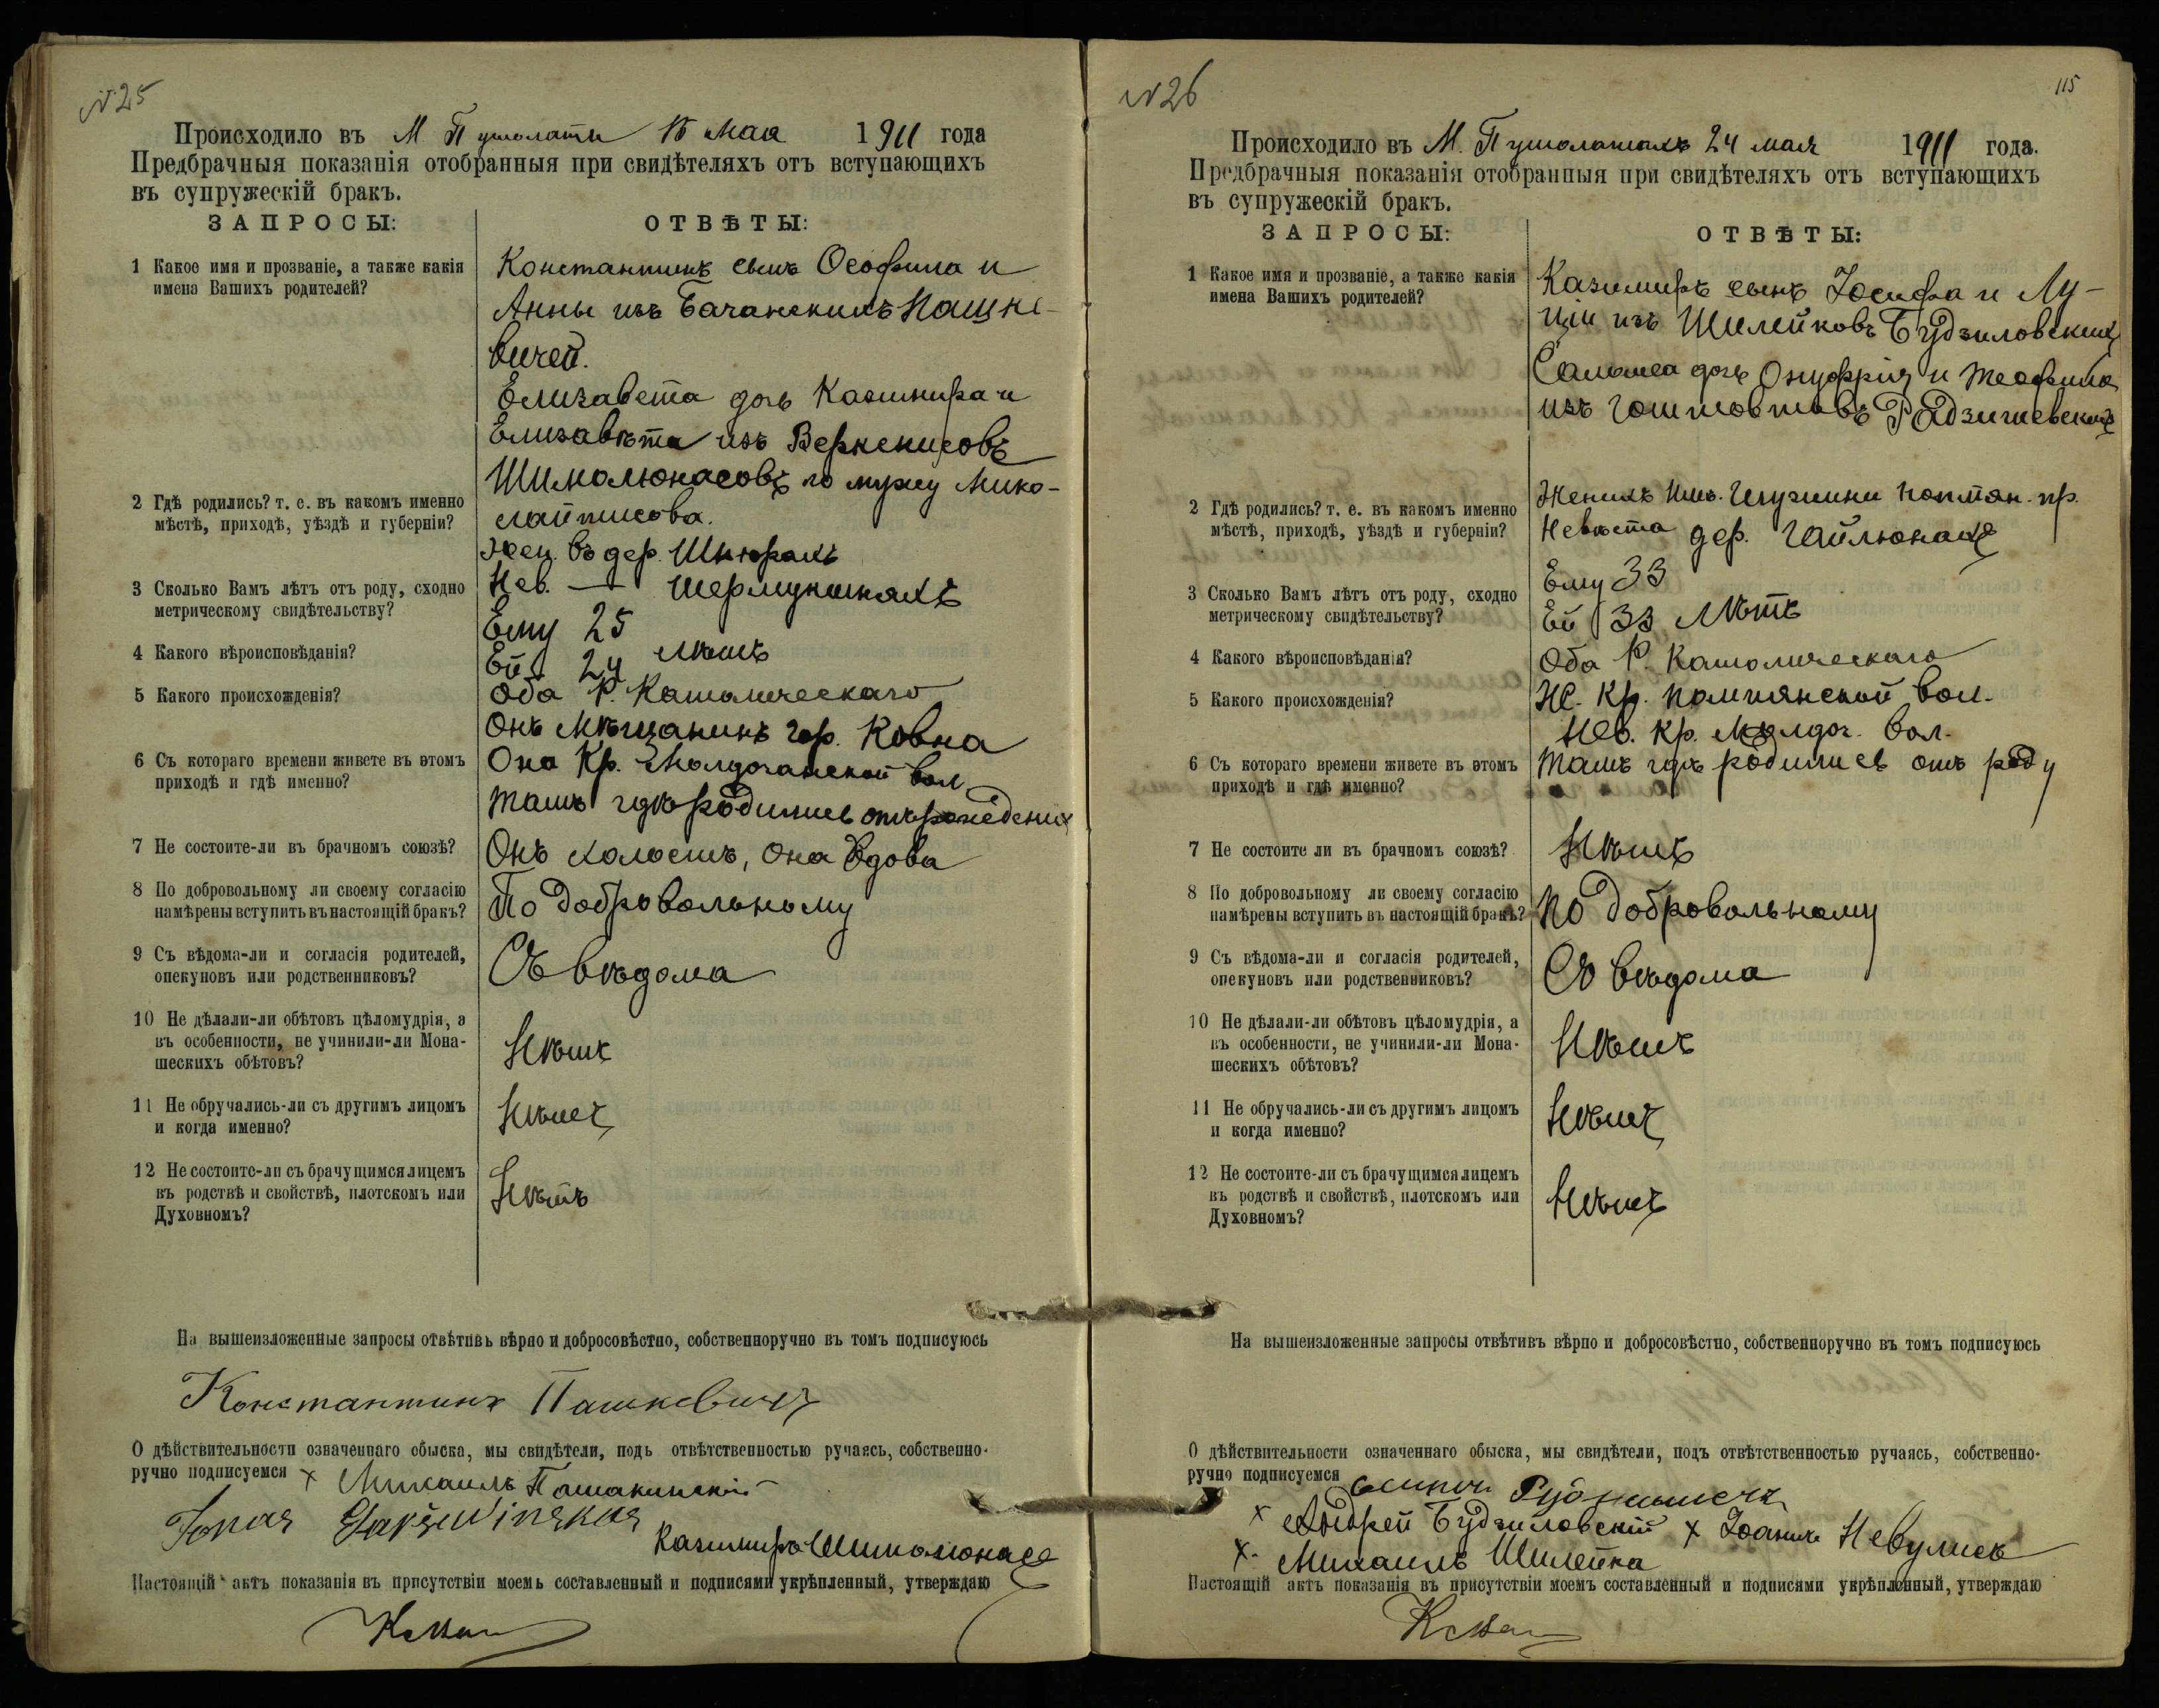 N 25
Происходило въ М Пушолаты 15 мая 1911 года
Предбрачныя показанія отобранныя при свидѣтеляхъ отъ вступающихъ
въ супружескій бракъ.
ЗАПРОСЫ: ОТВѢТЫ:
1 Какое имя и прозваніе, а также какія
имена Вашихъ родителей?
Константинъ сынъ Ѳеофила и
Анны изъ Бачанскихъ Пашке-
вичей.
Елизавета дочь Казимира и
Елизавѣта изъ
по мужу Мико-
2 Гдѣ родились? т. е. въ какомъ именно
мѣстѣ, приходѣ, уѣздѣ и губерніи?
Жен. въ дер.
Нев. —
3 Сколько Вамъ лѣтъ отъ роду, сходно
метрическому свидѣтельству?
Ему 25
Ей 24 лѣтъ
4 Какого вѣроисповѣданія?
Оба Р. Католическаго
5 Какого происхожденія?
Онъ мѣщанинъ гор. Ковна
Она Кр. вол
6 Съ котораго времени живете въ этомъ
приходѣ и гдѣ именно?
тамъ гдѣ родились отъ рожденія
7 Не состоите-ли въ брачномъ союзѣ?
Онъ холостъ, она вдова
8 По добровольному ли своему согласію
намѣрены вступить въ настоящій бракъ?
По добровольному
9 Съ вѣдома-ли и согласія родителей,
опекуновъ или родственниковъ?
Съ вѣдома
10 Не дѣлали-ли обѣтовъ цѣломудрія, а
въ особенности, не учинили-ли Мона-
шескихъ обѣтовъ?
Нѣтъ
11 Не обручались-ли съ другимъ лицомъ
и когда именно?
Нѣтъ
12 Не состоите-ли съ брачущимся лицемъ
въ родствѣ и свойствѣ, плотскомъ или
Духовномъ?
Нѣтъ
На вышеизложенные запросы отвѣтивъ вѣрно и добросовѣстно, собственноручно въ томъ подписуюсь
Константинъ Пашкевичъ
О дѣйствительности означеннаго обыска, мы свидѣтели, подъ отвѣтственностью ручаясь, собственно-
ручно подписуемся х Михаилъ
Казимиръ Шимолюнасъ
Настоящій актъ показанія въ присутствіи моемъ составленный и подписями укрѣпленный, утверждаю
N 26
115
Происходило въ М. Пушолатахъ 24 мая 1911 года.
Предбрачныя показанія отобранныя при свидѣтеляхъ отъ вступающихъ
въ супружескій бракъ.
ЗАПРОСЫ: ОТВѢТЫ:
1 Какое имя и прозваніе, а также какія
имена Вашихъ родителей?
Казимиръ сынъ Іосифа и Лу-
ціи изъ Шилейковъ Будзиловскихъ
дочь Онуфрія и Теофили
изъ
2 Гдѣ родились? т. е. въ какомъ именно
мѣстѣ, приходѣ, уѣздѣ и губерніи?
Женихъ пр.
Невѣста дер.
3 Сколько Вамъ лѣтъ отъ роду, сходно
метрическому свидѣтельству?
Ему 33
Ей 33 лѣтъ
4 Какого вѣроисповѣданія?
Оба Р. Католическаго
5 Какого происхожденія?
Же. Кр. вол.
Нев. Кр. вол.
6 Съ котораго времени живете въ этомъ
приходѣ и гдѣ именно?
тамъ гдѣ родились отъ роду
7 Не состоите ли въ брачномъ союзѣ?
Нѣтъ
8 По добровольному ли своему согласію
намѣрены вступить въ настоящій бракъ?
По добровольному
9 Съ вѣдома-ли и согласія родителей,
опекуновъ или родственниковъ?
Съ вѣдома
10 Не дѣлали-ли обѣтовъ цѣломудрія, а
въ особенности, не учинили-ли Мона-
шескихъ обѣтовъ?
Нѣтъ
11 Не обручались-ли съ другимъ лицомъ
и когда именно?
Нѣтъ
12 Не состоите-ли съ брачущимся лицемъ
въ родствѣ и свойствѣ, плотскомъ или
Духовномъ?
Нѣтъ
На вышеизложенные запросы отвѣтивъ вѣрно и добросовѣстно, собственноручно въ томъ подписуюсь
О дѣйствительности означеннаго обыска, мы свидѣтели, подъ отвѣтственностью ручаясь, собственно-
ручно подписуемся
х Андрей Будзиловскій х Іоаннъ
х. Михаилъ Шилейка
Настоящій актъ показанія въ присутствіи моемъ составленный и подписями укрѣпленный, утверждаю